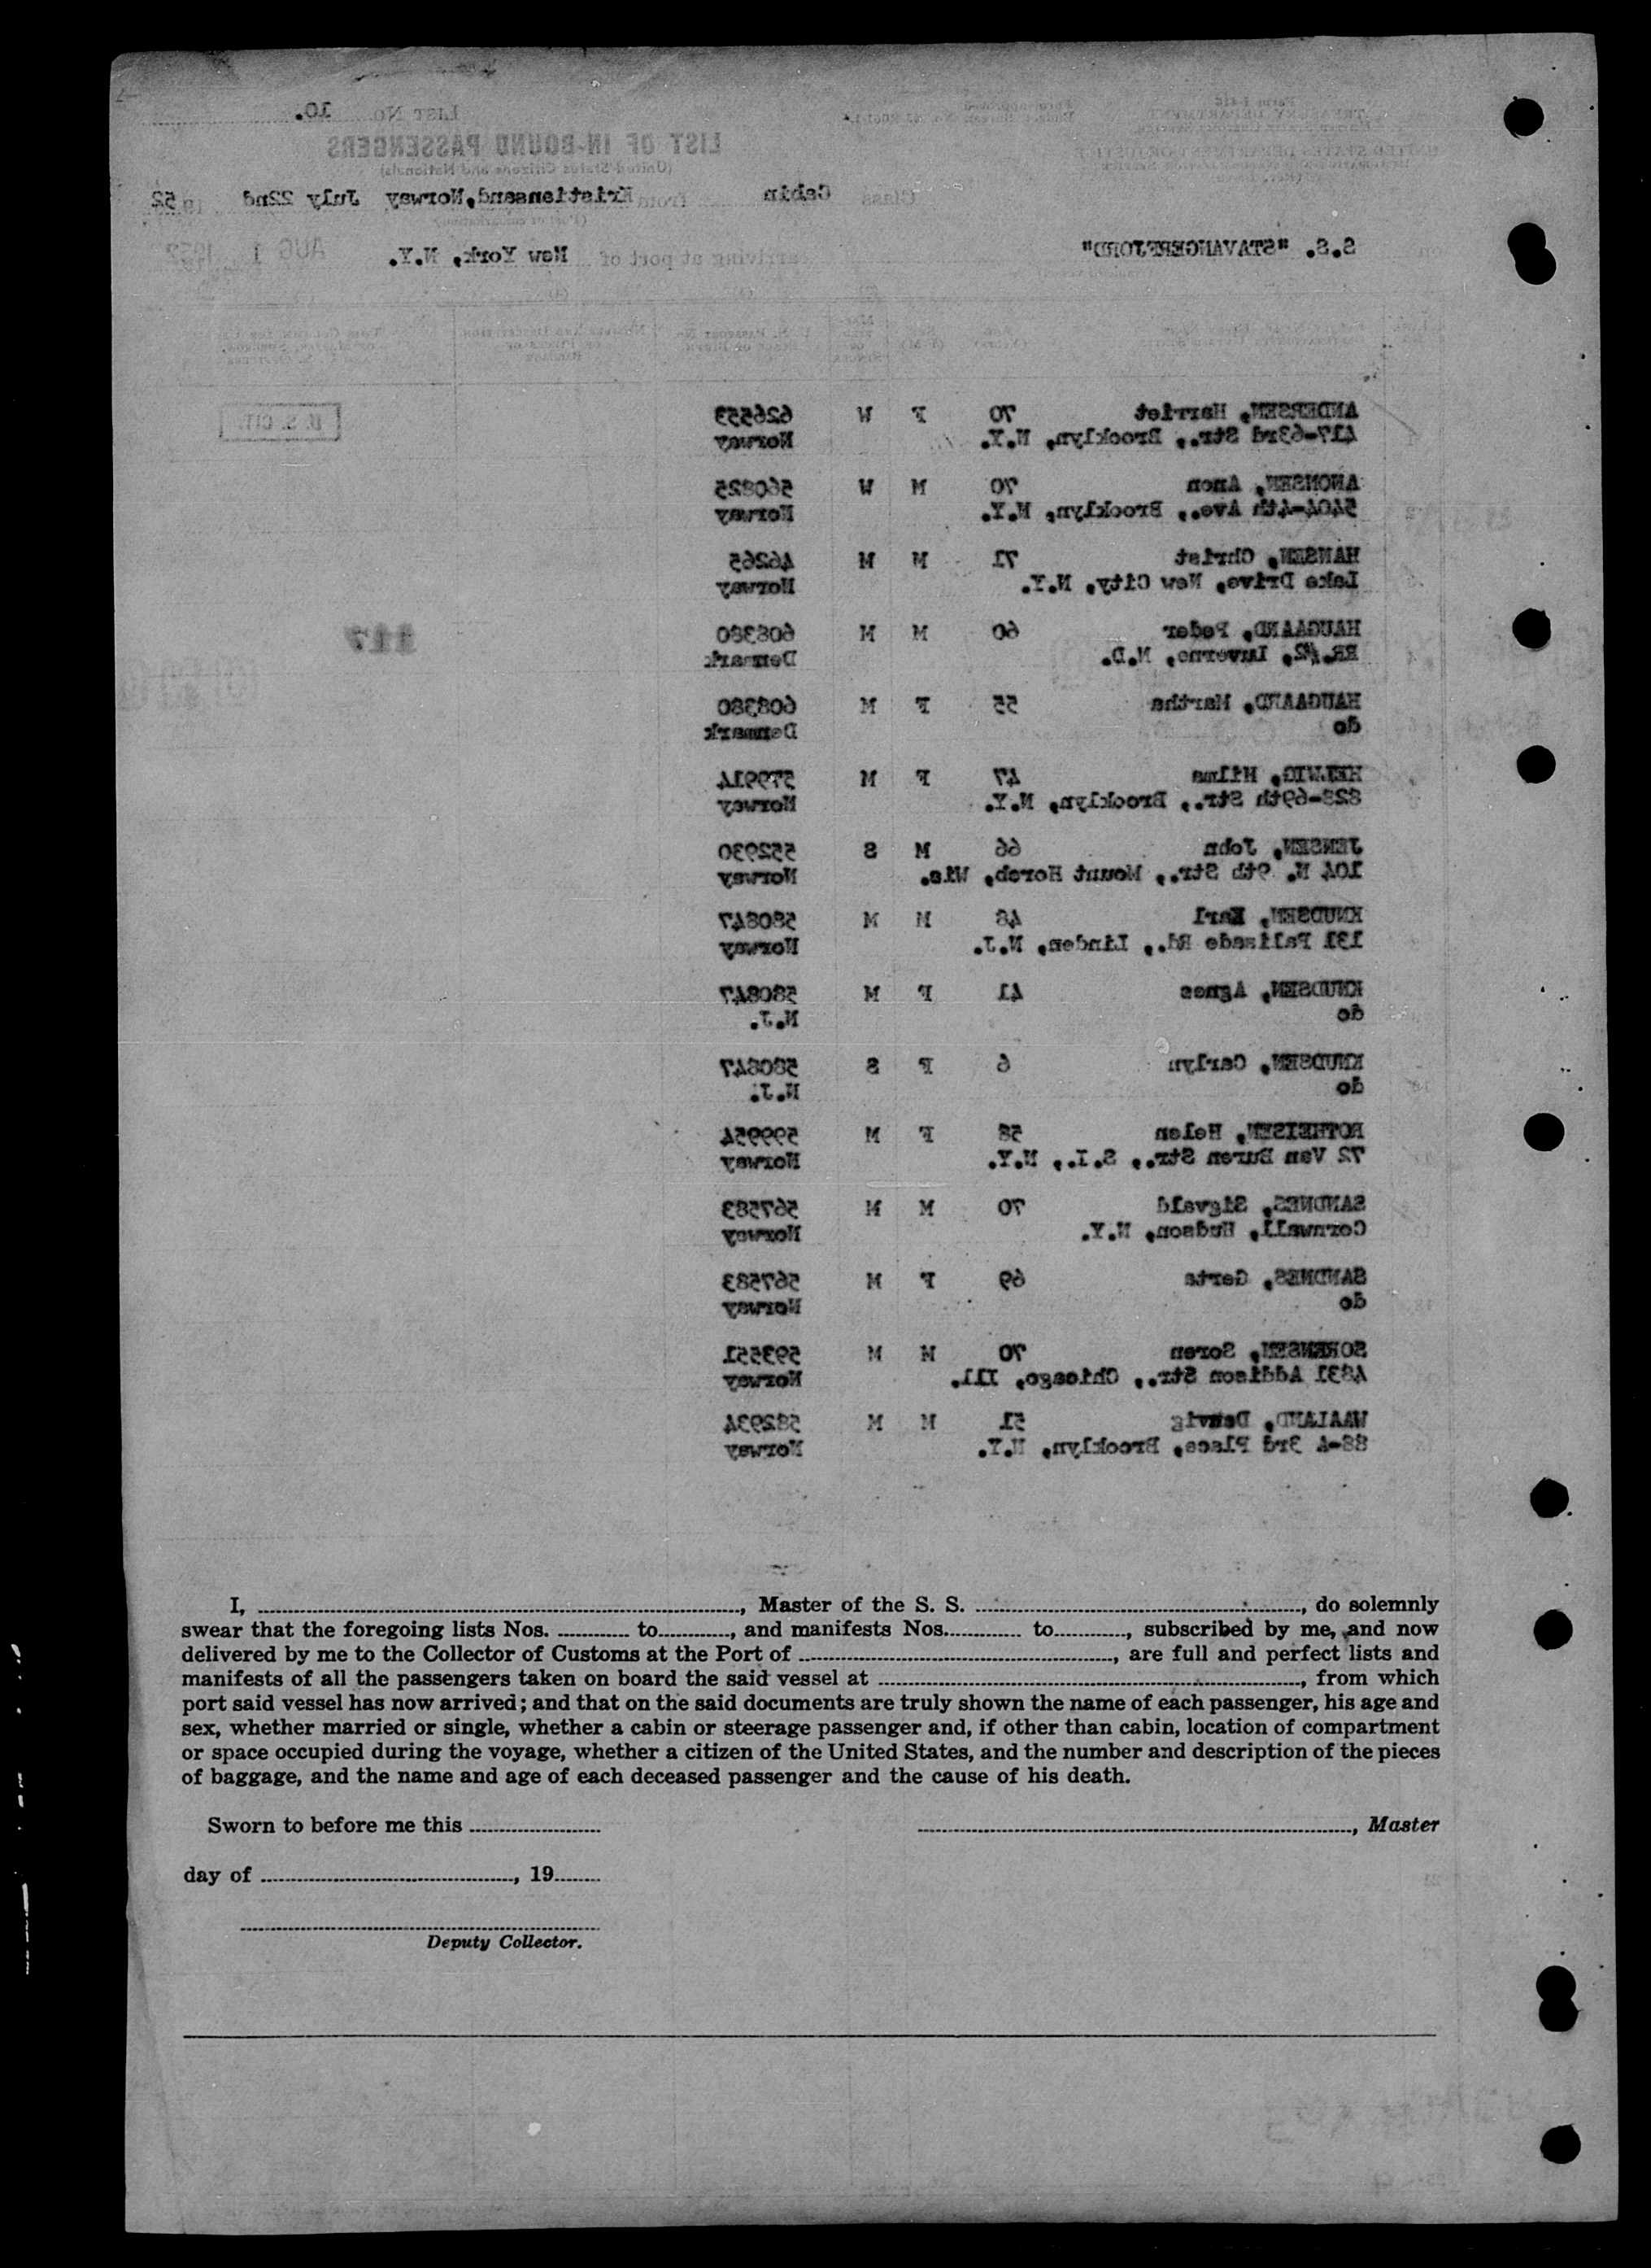 List No. 10.
LIST OF IN-BOUND PASSENGERS
(United States Citizens and Nationals)
Class Cabin from Kristiansand, Norway July 22nd 19 52
on S.S. "STAVANGERFJORD" arriving at port of New York, N.Y. AUG 1 1952
ANDERSEN, Harriet 70 F W 626553 U. S. CIT.
417-63rd Str., Brooklyn, N.Y. Norway
ANONSEN, Anon 70 M W 560825
5404-4th Ave., Brooklyn, N.Y. Norway
HANSEN, Christ 71 M M 46265
Lake Drive, New City, N.Y. Norway
HAUGAARD, Peder 60 M M 608380
RR.#2, Luverne, N.D. Denmark
117
HAUGAARD, Martha 55 F M 608380
do Denmark
HELWIG, Hilma 47 F M 579914
828-69th Str., Brooklyn, N.Y. Norway
JENSEN, John 66 M S 552930
104 N. 9th Str., Mount Horeb, Wis. Norway
KNUDSEN, Karl 48 M M 580847
131 Palisade Rd., Linden, N.J. Norway
KNUDSEN, Agnes 41 F M 580847
do N.J.
KNUDSEN, Carlyn 6 F S 580847
do N.J.
ROTHEISEN, Helen 58 F M 599954
72 Van Buren Str., S.I., N.Y. Norway
SANDNES, Sigvald 70 M M 567583
Cornwall, Hudson, N.Y. Norway
SANDNES, Gerta 69 F M 567583
do Norway
SORENSEN, Soren 70 M M 593551
4831 Addison Str., Chicago, Ill. Norway
WAALAND, Denvig 51 M M 582934
88-A 3rd Place, Brooklyn, N.Y. Norway
I, , Master of the S. S. , do solemnly
swear that the foregoing lists Nos. to , and manifests Nos. to , subscribed by me, and now
delivered by me to the Collector of Customs at the Port of , are full and perfect lists and
manifests of all the passengers taken on board the said vessel at , from which
port said vessel has now arrived; and that on the said documents are truly shown the name of each passenger, his age and
sex, whether married or single, whether a cabin or steerage passenger and, if other than cabin, location of compartment
or space occupied during the voyage, whether a citizen of the United States, and the number and description of the pieces
of baggage, and the name and age of each deceased passenger and the cause of his death.
Sworn to before me this
, Master
day of , 19
Deputy Collector.